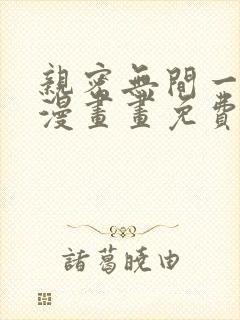 親密無間一
漫畫畫免費
諸葛曉由